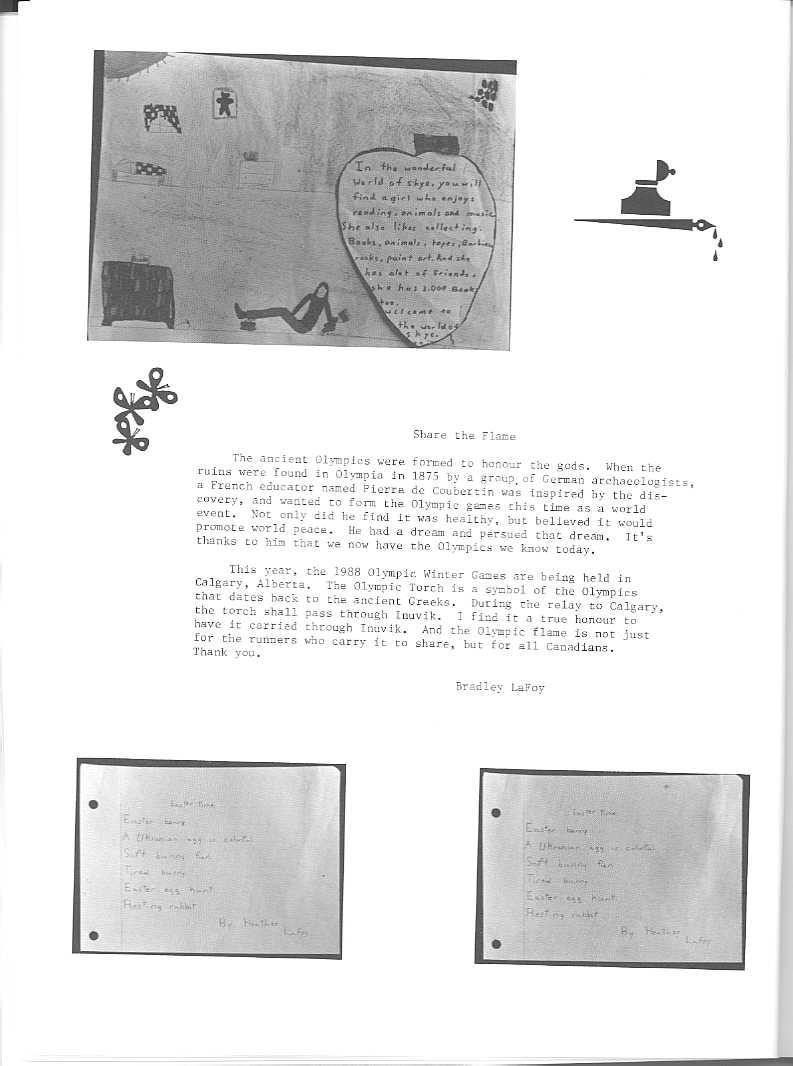 In the wonderful
World of skye, you will
find a girl who enjoys
reading, animals and music
She also likes collecting.
Books, animals, tapes, Barbies,
rocks, paint art. And she
has alot of friends,
she has 1,000 Books
too.
welcome to
the world of
skye.
Share the Flame
The ancient Olympics were formed to honour the gods. When the
ruins were found in Olympia in 1875 by a group of German archaeologists,
a French educator named Pierre de Coubertin was inspired by the dis-
covery, and wanted to form the Olympic games this time as a world
event. Not only did he find it was healthy, but believed it would
promote world peace. He had a dream and persued that dream. It's
thanks to him that we now have the Olympics we know today.
This year, the 1988 Olympic Winter Games are being held in
Calgary, Alberta. The Olympic Torch is a symbol of the Olympics
that dates back to the ancient Greeks. During the relay to Calgary,
the torch shall pass through Inuvik. I find it a true honour to
have it carried through Inuvik. And the Olympic flame is not just
for the runners who carry it to share, but for all Canadians.
Thank you.
Bradley LaFoy
Easter Time
Easter bunny
A Ukranian egg is colorful
Soft bunny
Tired bunny
Easter egg hunt
Resting rabbit
By Heather
LaFoy
Easter Time
Easter bunny
A Ukranian egg is colorful
Soft bunny
Tired bunny
Easter egg hunt
Resting rabbit
By Heather
LaFoy